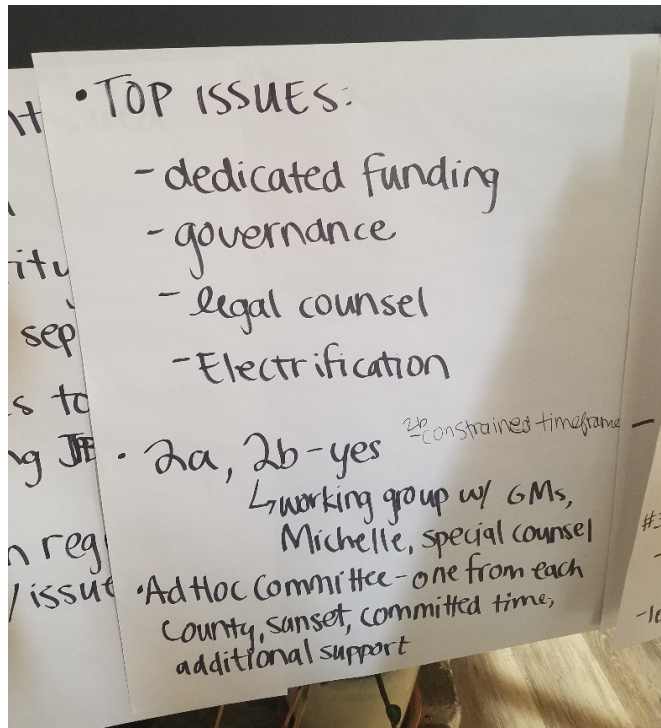 • TOP ISSUES:
- dedicated funding
- governance
- legal counsel
- Electrification
• 2a, 2b - yes
2b - constrained timeframe
↳ working group w/ GMs,
Michelle, special counsel
• Ad Hoc Committee - one from each
County, sunset, committed time,
additional support
ity
sep
s to
ng JPB
n reg
/issue